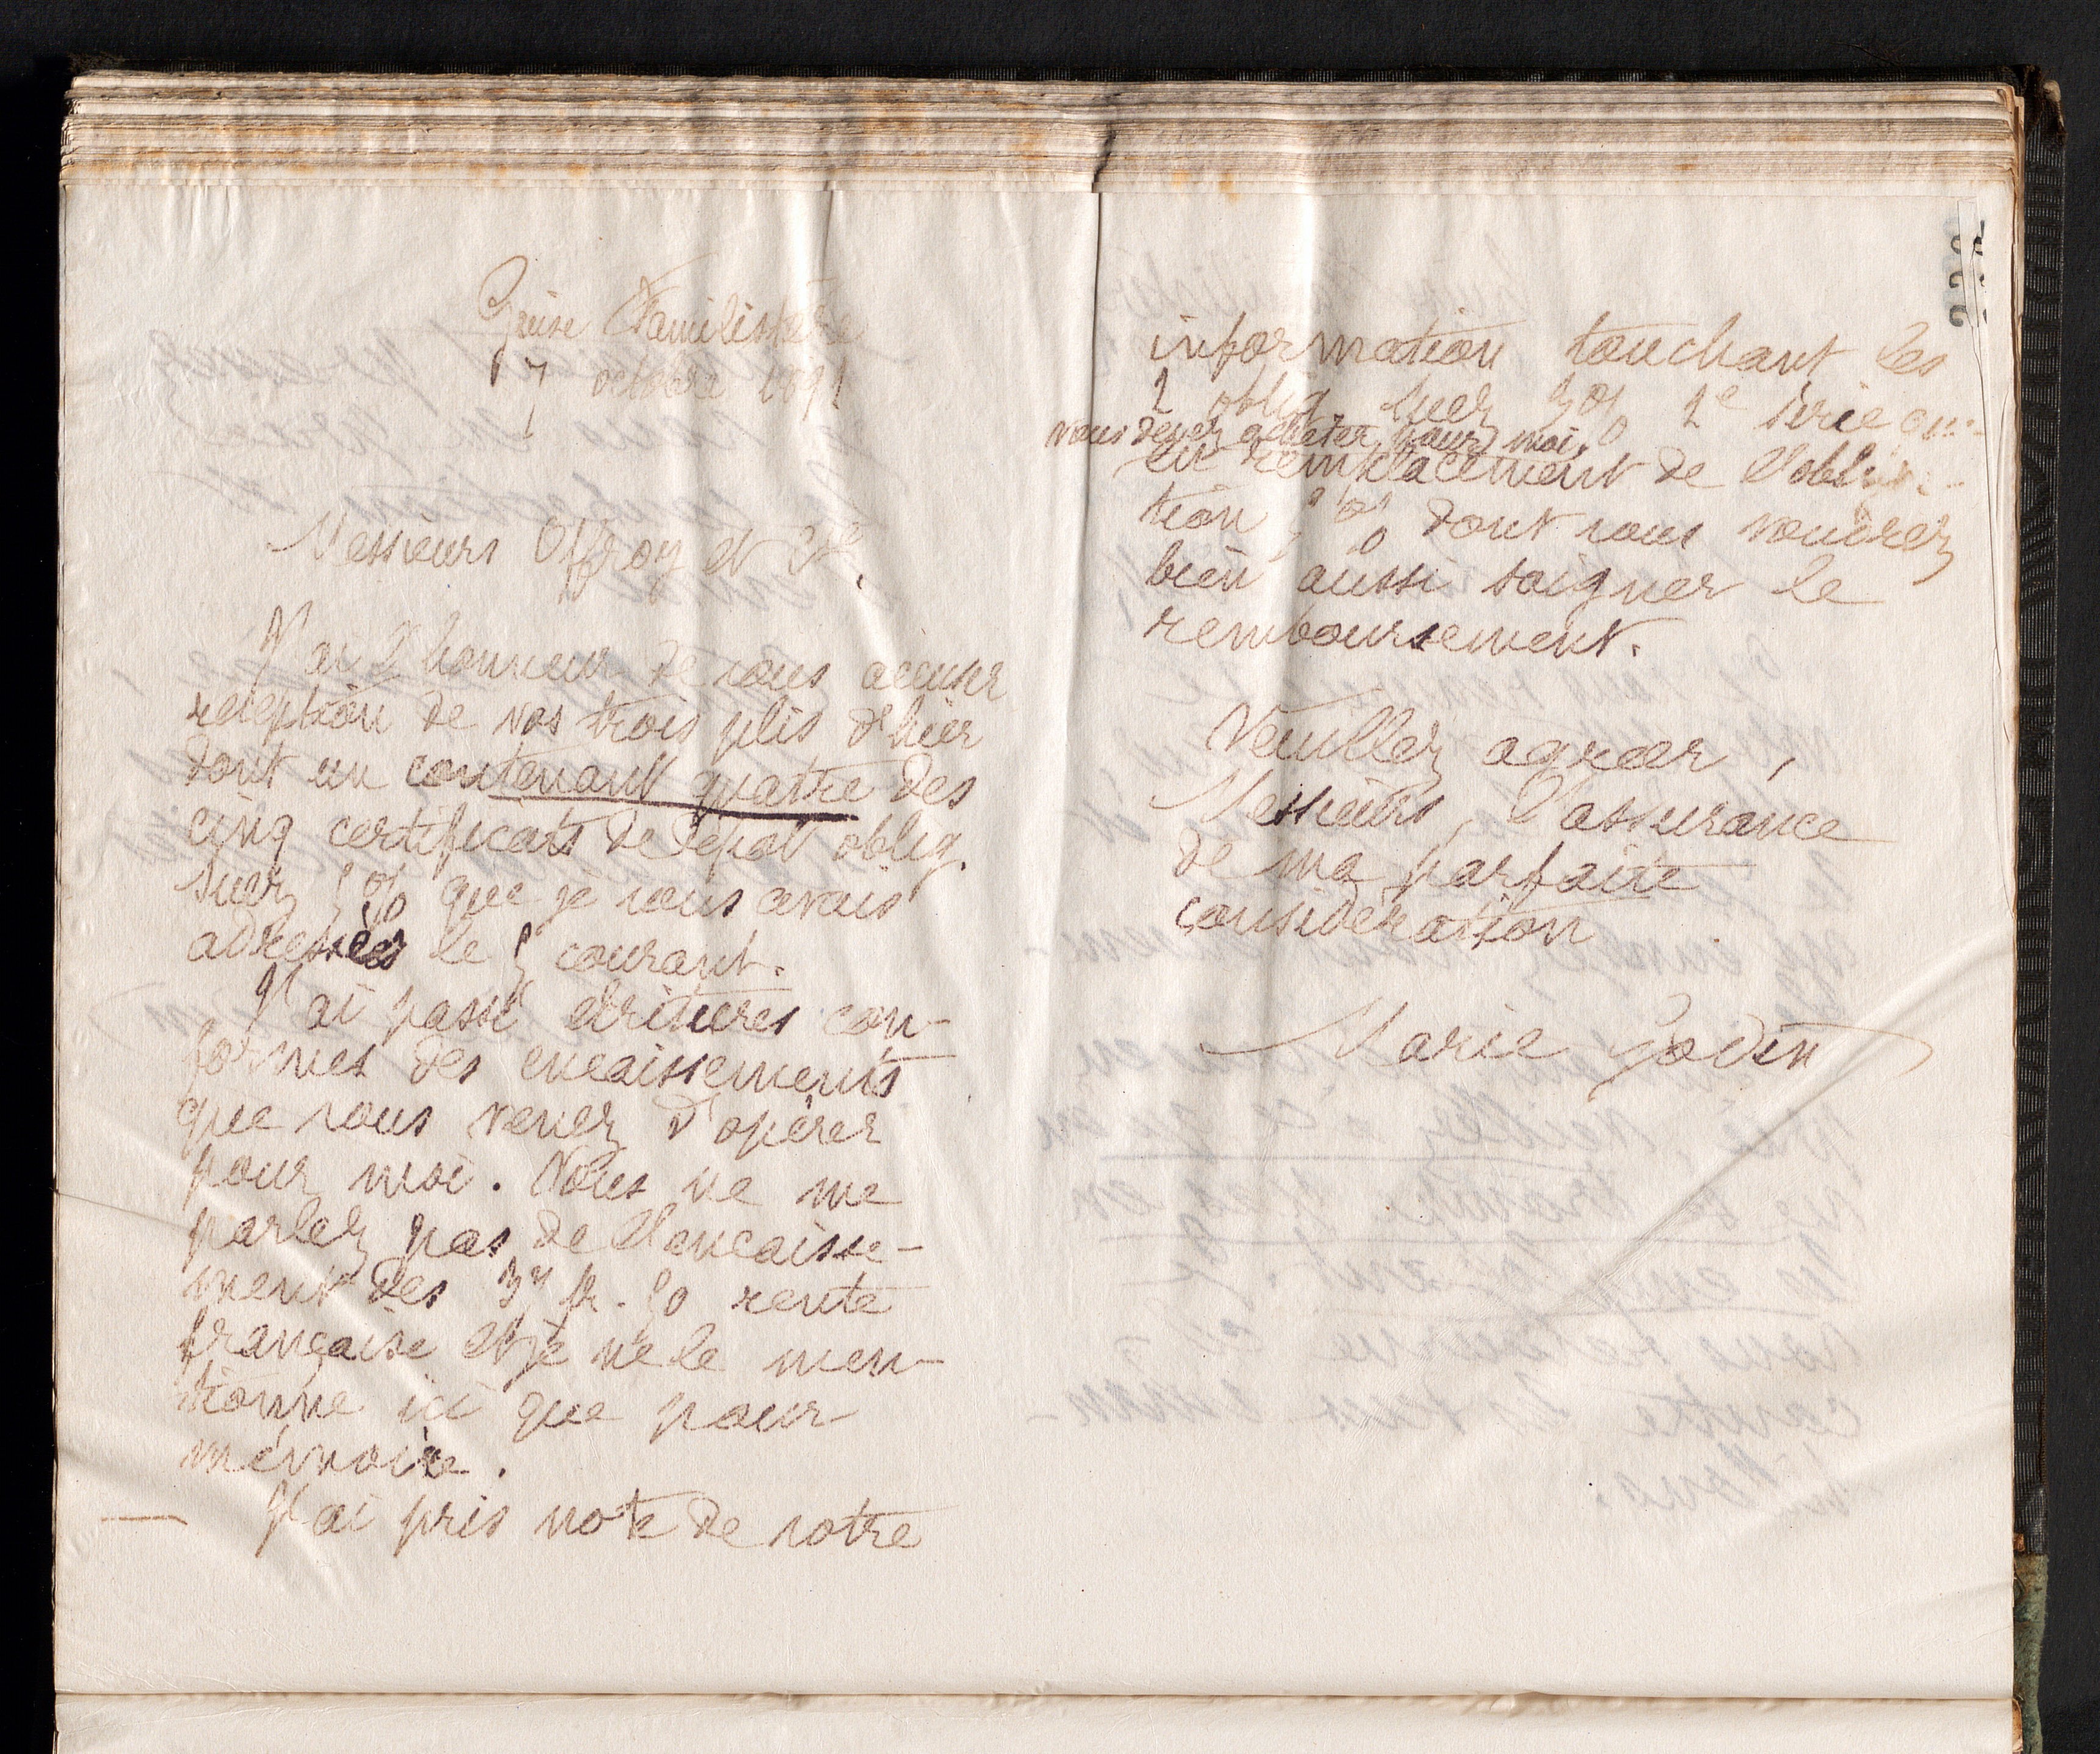 Guise Familistère
7 octobre 1891
Messieurs Offroy et Cie,
J'ai l'honneur de vous accuser
réception de vos trois plis d'hier
dont un contenant quatre des
cinq certificats de dépôt oblig.
Suez 5% que je vous avais
adressés le 5 courant.
J'ai passé écritures con-
formes des encaissements
que vous venez d'opérer
pour moi. Vous ne me
parlez pas de l'encaisse-
ment des 37 fr. 50 rente
française et je ne le men-
tionne ici que pour
mémoire.
J'ai pris note de votre
information touchant les
2 oblig. Suez 3% 2e série que
vous devez acheter pour moi,
en remplacement de l'obliga-
tion 5% dont vous voudrez
bien aussi soigner le
remboursement.
Veuillez agréer,
Messieurs, l'assurance
de ma parfaite
considération
Marie Godin